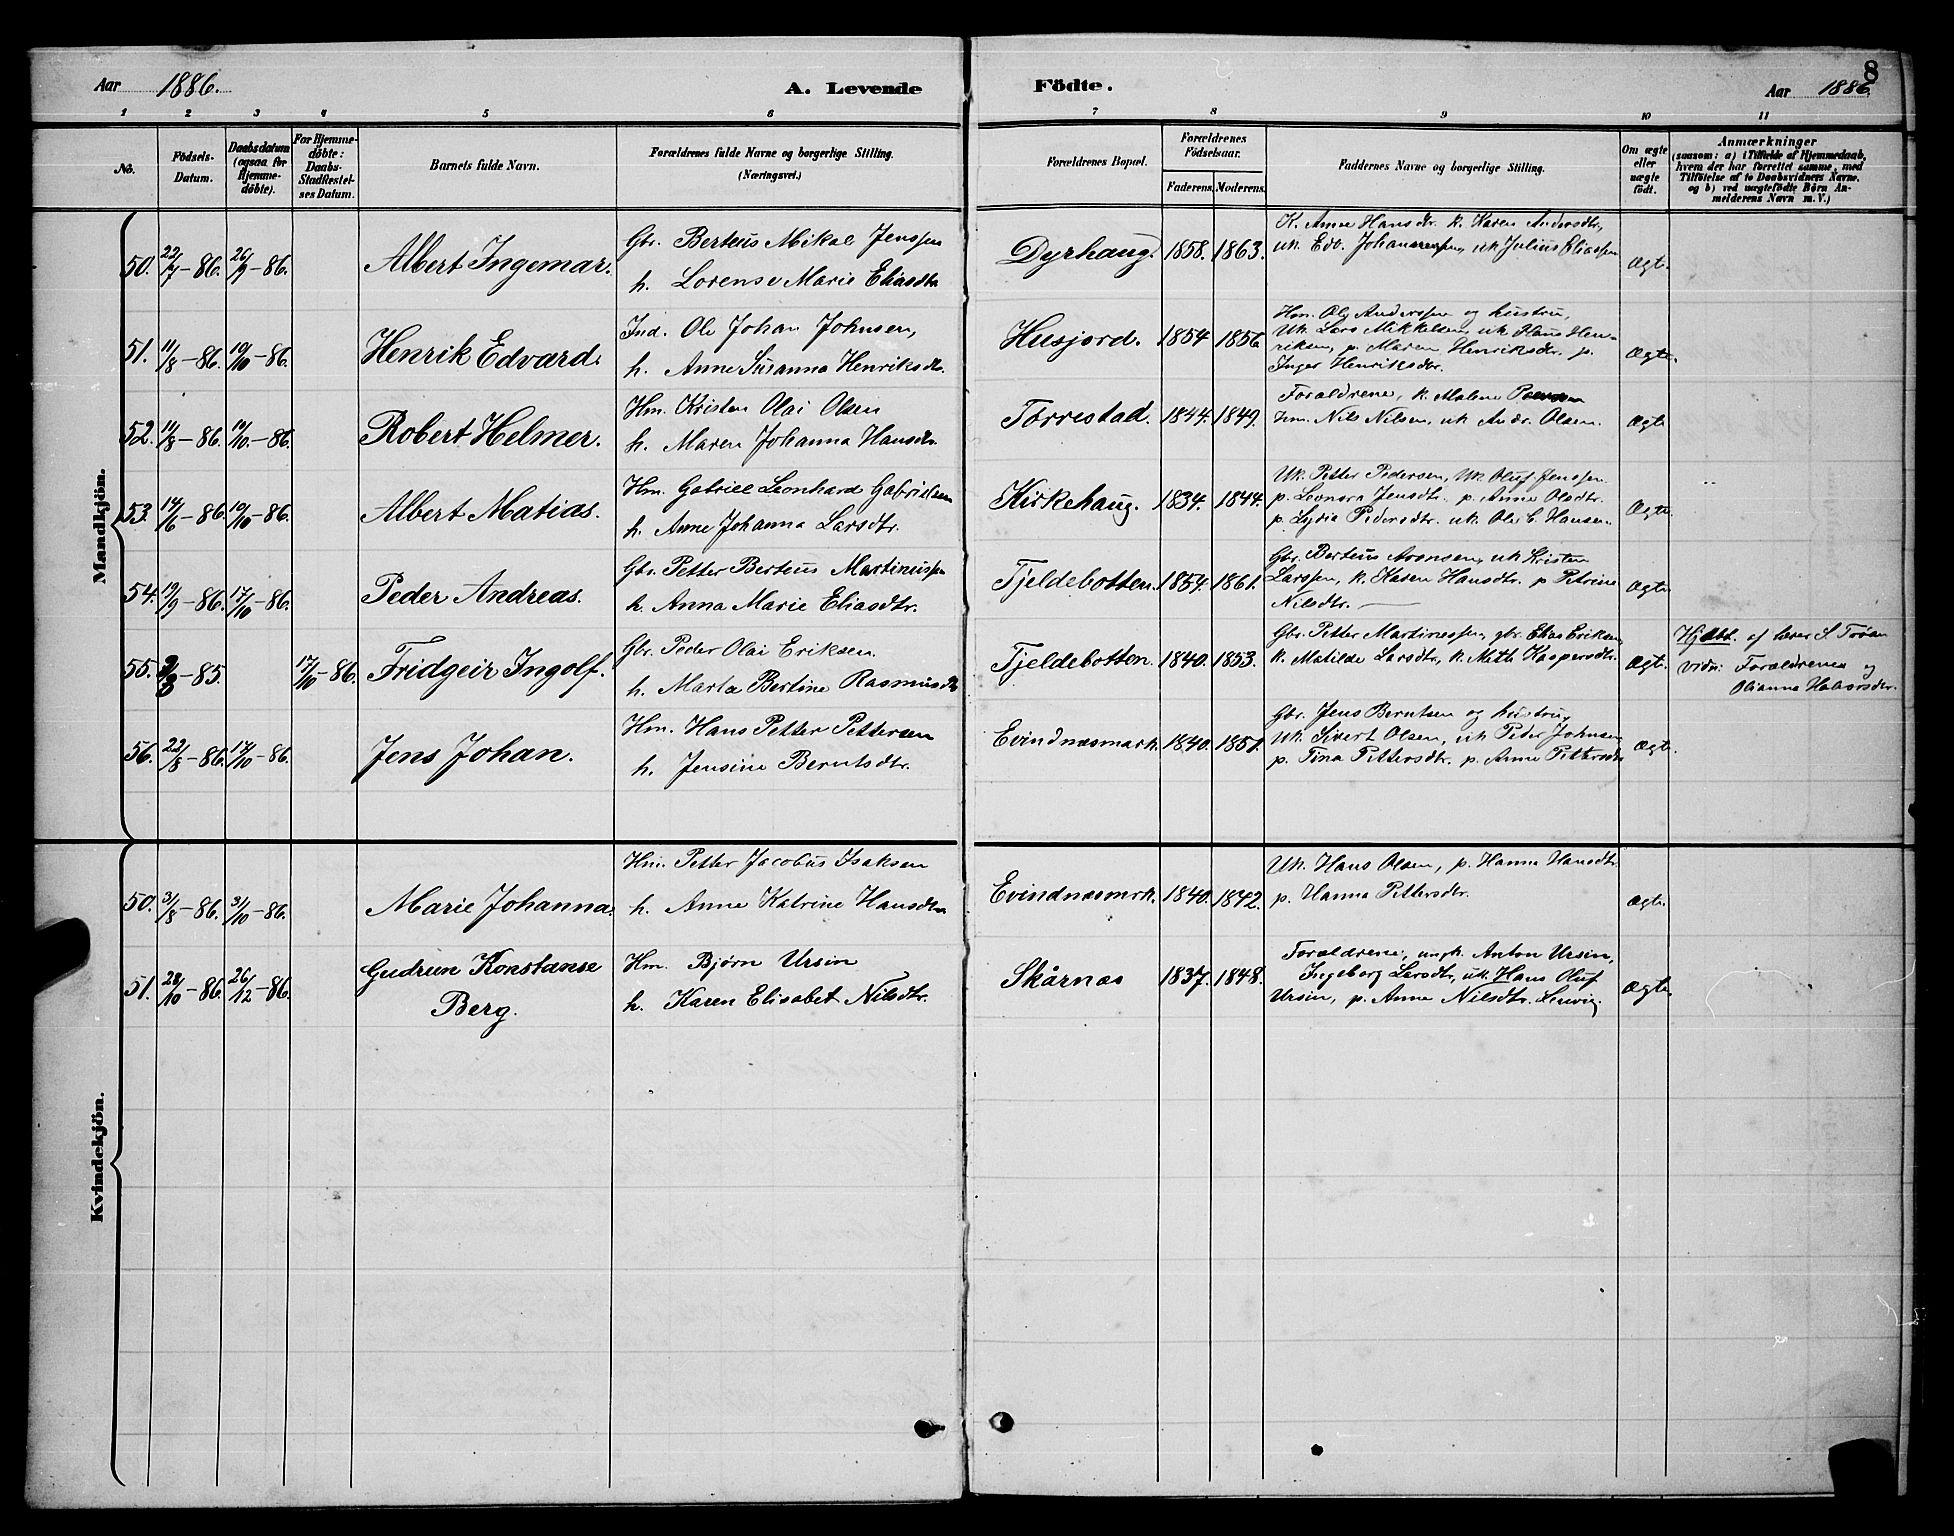 Aar 1886.
A. Levende Födte.
8
Aar 1886.
1 2 3 4 5 6 7 8 9 10 11
No.
Födsels-Datum.
Daabsdatum (ogsaa for Hjemme-döbte).
For Hjemme-döbte: Daabs-Stadfestel-ses Datum.
Barnets fulde Navn.
Forældrenes fulde Navne og borgerlige Stilling.
(Næringsvei.)
Forældrenes Bopæl.
Forældrenes Födselsaar.
Faderens. Moderens.
Faddernes Navne og borgerlige Stilling.
Om ægte eller uægte födt.
Anmærkninger
(saasom: a) i Tilfælde af Hjemmedaab, hvem der har forrettet samme, med Tilföielse af to Daabsvidners Navne, og b) ved uægtefödte Börn Anmelderens Navn m. V.)
Mandkjön.
50. 22/7-86. 26/9-86. Albert Ingemar. Gbr. Berteus Mikal Jenssen
h. Lorense Marie Eliasdtr
Dyrhaug. 1858. 1863.
K. Anne Hansdtr. k. Karen Andersdtr,
uk. Edv. Johannessen, uk Julius Eliassen
Ægte.
51. 11/8-86. 10/10-86. Henrik Edvard. Ind. Ole Johan Johnsen,
h. Anne Susanna Henriksdtr.
Husjord. 1854 1856
Hm. Ole Anderssen og hustru,
Uk. Lars Mikkelsen, uk Hans Hen-
riksen, p. Maren Henriksdtr. p.
Inger Henriksdtr.
Ægte.
52. 14/8-86. 10/10-86. Robert Helmer. Hm. Kristen Olai Olsen
h. Maren Johanna Hansdtr.
Torrestad. 1844. 1849.
Forældrene, k. Malene
hm. Nils Nilsen, uk Andr. Olsen.
Ægte
53. 14/6-86. 10/10-86. Albert Matias. Hm. Gabriel Leonhard Gabrielsen
h. Anne Johanna Larsdtr.
Kirkehaug. 1834. 1844.
Uk. Petter Pedersen, Uk. Oluf Jenssen
p. Leonora Jensdtr. p. Anne Olsdtr.
p. Lydia Pedersdtr. uk. Ole C. Hansen.
Ægte.
54. 19/9-86. 17/10-86. Peder Andreas. Gbr. Petter Berteus Martinussen
h. Anna Marie Eliasdtr.
Tjeldebotten. 1854. 1861.
Gbr. Berteus Aronsen, uk Kristen
Larssen, k. Karen Hansdtr. p Petrine
Nilsdtr.
Ægte
55. -85. 17/10-86. Fridgeir Ingolf. Gbr. Peder Olai Eriksen
h. Marta Bertine Rasmusdtr
Tjeldebotten. 1840. 1853.
Gbr. Petter Martinussen, gbr. Elias Eriksen,
k. Matilde Larsdtr, k. Meth Kaspersdtr.
Ægte.
Hjdbt. af lærer S. Tröan
vidn: Forældrene og
Olianna Halvorsdtr.
56. 22/8-86. 17/10-86. Jens Johan. Hm. Hans Petter Pettersen
h. Jensine Berntsdtr.
Evindnæsmark. 1840. 1851.
Gbr. Jens Berntsen og hustru,
Uk. Sivert Olsen, uk Peder Johnsen
p. Tina Pettersdtr. p. Anne Pettersdtr
Ægte.
Kvindekjön.
50. 31/8-86. 31/10-86. Marie Johanna. Hm. Petter Jacobus Isaksen
h. Anne Katrine Hansdtr
Evindnæsmrk. 1840. 1842.
Uk. Hans Olsen, p. Hanna Hansdtr
p. Hanna Pettersdtr.
Ægte.
51. 28/10-86. 26/12-86. Gudrun Konstanse
Berg.
Hm. Bjørn Ursin
h. Karen Elisabet Nilsdtr.
Skårnæs 1837. 1848.
Forældrene, ungk. Anton Ursin,
Ingeborg Larsdtr, uk. Hans Oluf
Ursin, p. Anne Nilsdtr.
Ægte.